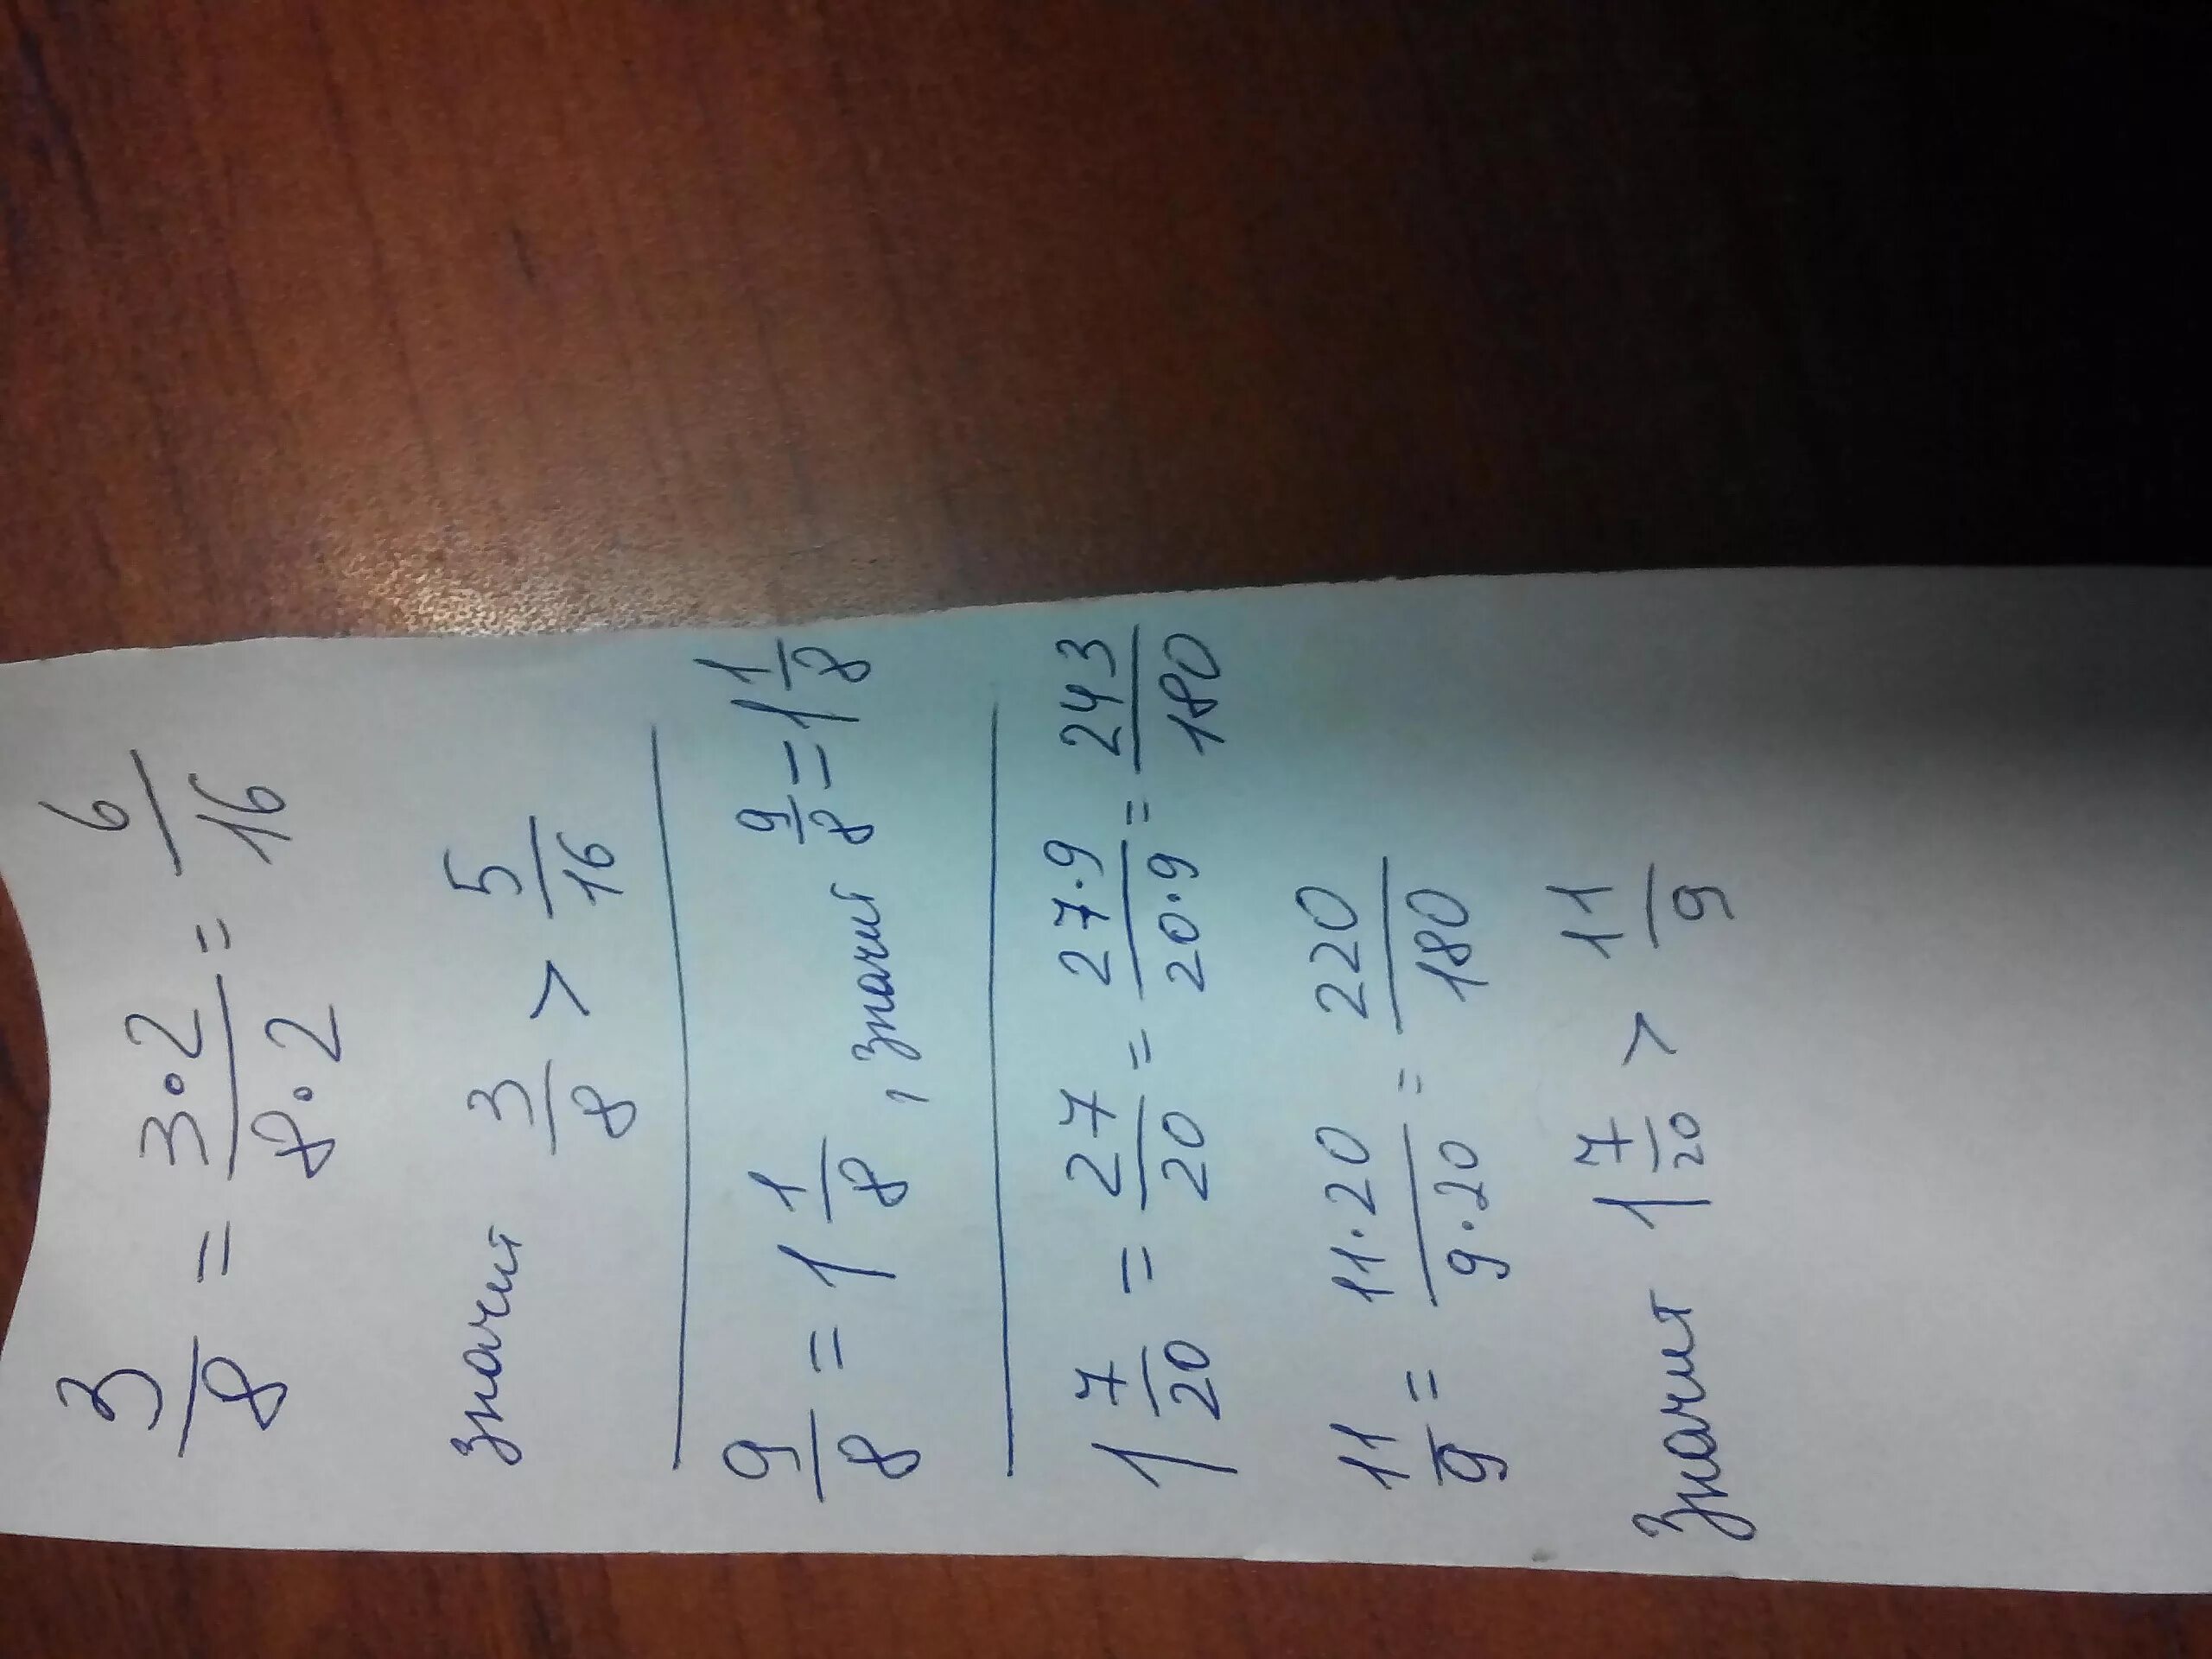 3/8 = 3·2/8·2 = 6/16
значит 3/8 > 5/16
9/8 = 1 1/8 , значит 9/8 = 1 1/8
1 7/20 = 27/20 = 27·9/20·9 = 243/180
11/9 = 11·20/9·20 = 220/180
Значит 1 7/20 > 11/9